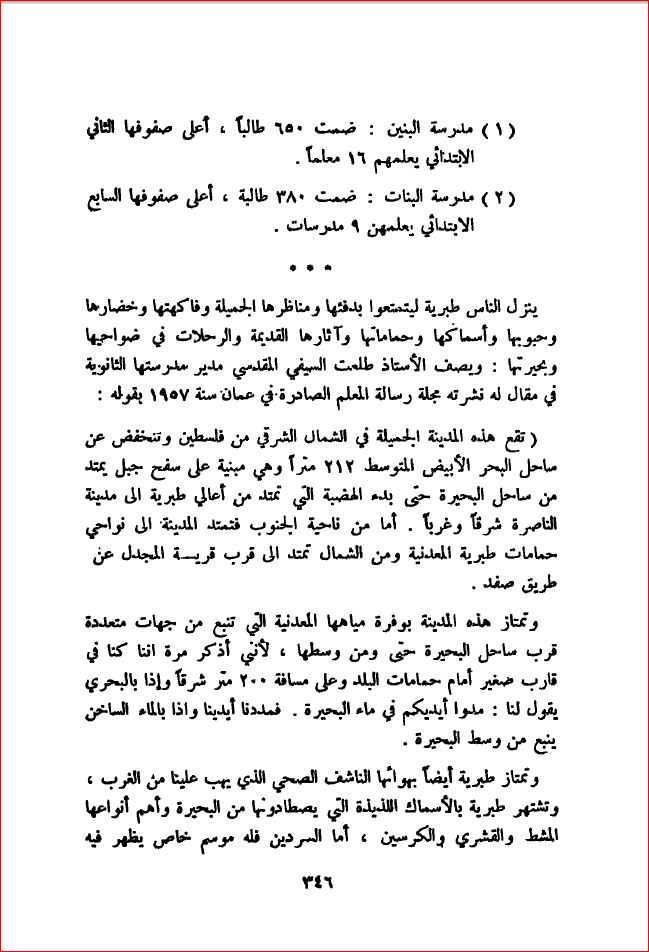 ( ١ ) مدرسة البنين : ضمت ٦٥٠ طالباً ، أعلى صفوفها الثاني
الابتدائي يعلمهم ١٦ معلماً .
( ٢ ) مدرسة البنات : ضمت ٣٨٠ طالبة ، أعلى صفوفها السابع
الابتدائي يعلمهن ٩ مدرسات .
* * *
ينزل الناس طبرية ليتمتعوا بدفئها ومناظرها الجميلة وفاكهتها وخضارها
وحبوبها وأسماكها وحماماتها وآثارها القديمة والرحلات في ضواحيها
وبحيرتها : ويصف الأستاذ طلعت السيفي المقدسي مدير مدرستها الثانوية
في مقال له نشرته مجلة رسالة المعلم الصادرة في عمان سنة ١٩٥٧ بقوله :
( تقع هذه المدينة الجميلة في الشمال الشرقي من فلسطين وتنخفض عن
ساحل البحر الأبيض المتوسط ٢١٢ متراً وهي مبنية على سفح جبل يمتد
من ساحل البحيرة حتى بدء الهضبة التي تمتد من أعالي طبرية الى مدينة
الناصرة شرقاً وغرباً . أما من ناحية الجنوب فتمتد المدينة الى نواحي
حمامات طبرية المعدنية ومن الشمال تمتد الى قرب قريـــة المجدل عن
طريق صفد .
وتمتاز هذه المدينة بوفرة مياهها المعدنية التي تنبع من جهات متعددة
قرب ساحل البحيرة حتى ومن وسطها ، لأنني أذكر مرة اننا كنا في
قارب صغير أمام حمامات البلد وعلى مسافة ٢٠٠ متر شرقاً وإذا بالبحري
يقول لنا : مدوا أيديكم في ماء البحيرة . فمددنا أيدينا واذا بالماء الساخن
ينبع من وسط البحيرة .
وتمتاز طبرية أيضاً بهوائها الناشف الصحي الذي يهب علينا من الغرب ،
وتشتهر طبرية بالأسماك اللذيذة التي يصطادونها من البحيرة وأهم أنواعها
المشط والقشري والكرسين ، أما السردين فله موسم خاص يظهر فيه
٣٤٦